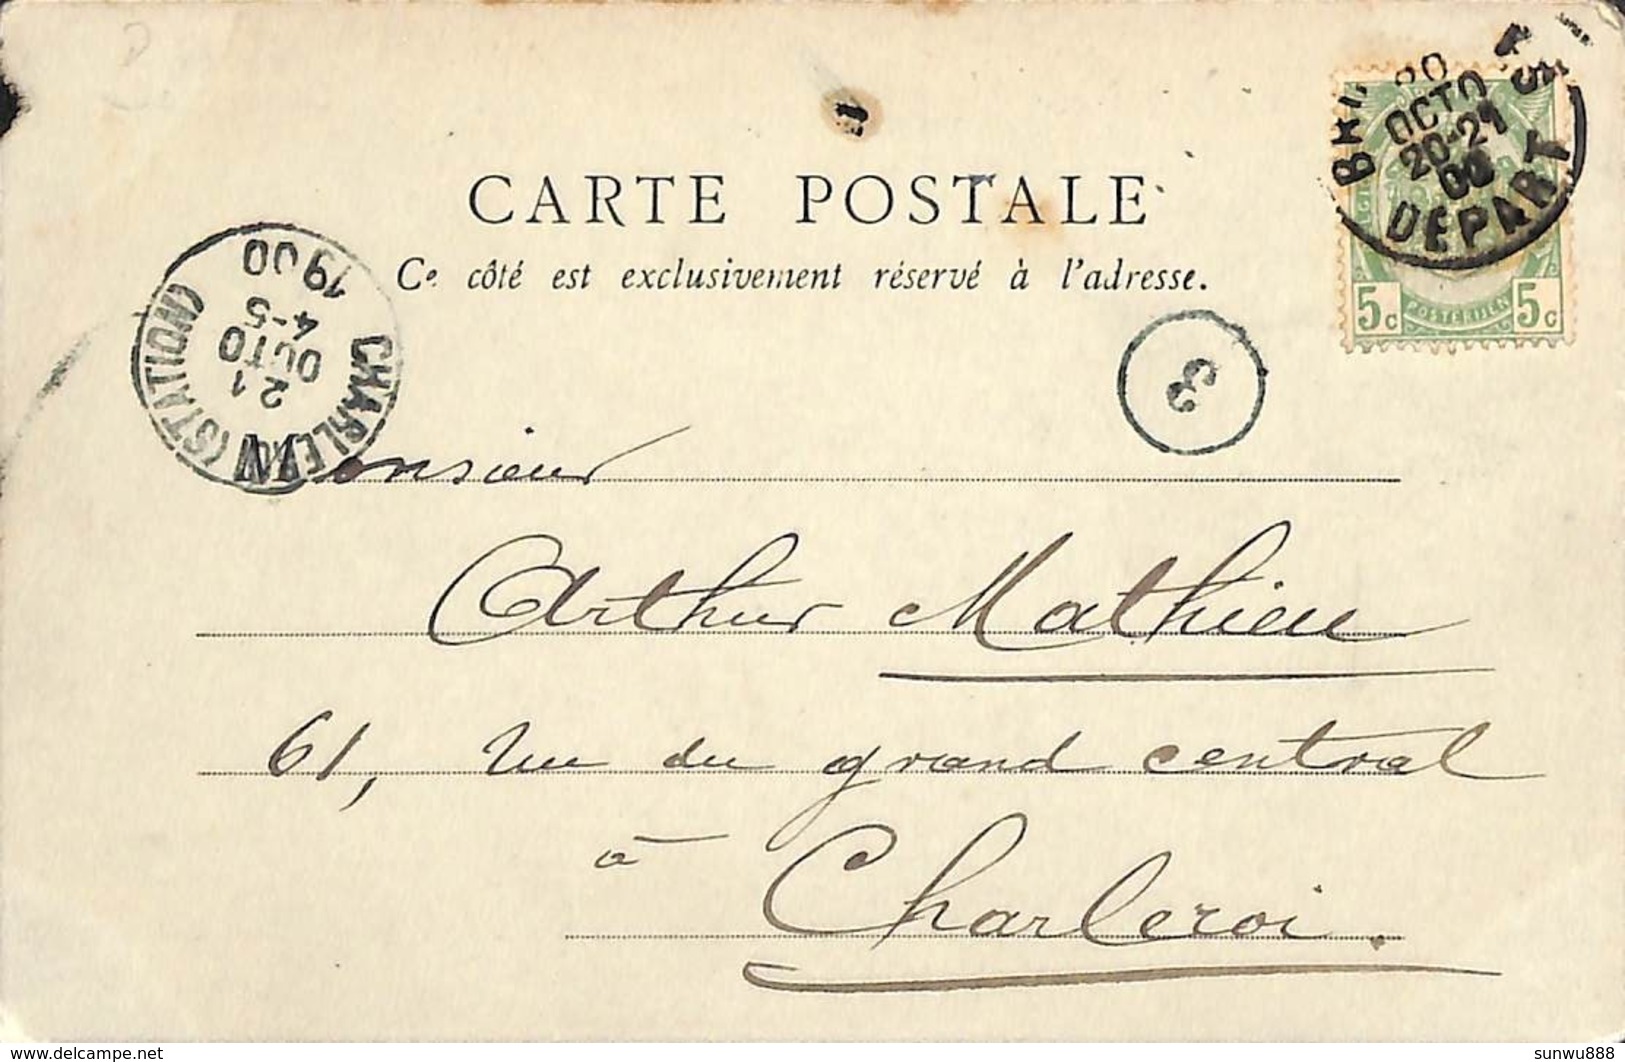 CARTE POSTALE
Ce côté est exclusivement réservé à l'adresse.
20
OCTO
20-21
00
DEPART
5c POSTERIJEN 5c
CHARLEROI (STATION)
21
OCTO
4-5
1900
3
Monsieur
Arthur Mathieu
61, rue du grand central
à Charleroi.
www.delcampe.net
sunwu888